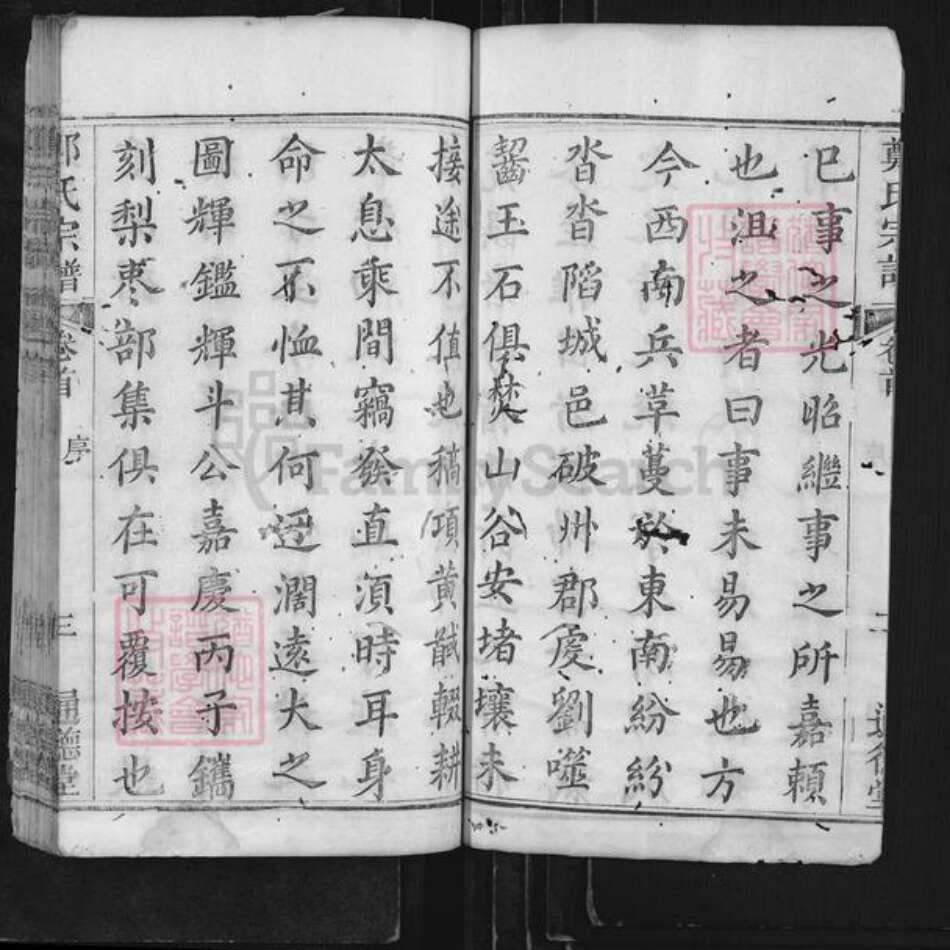 鄭氏宗譜 卷首
通德堂
巳事之光昭繼事之所嘉賴
也沮之者曰事未易易也方
今西南兵草蔓於東南紛紛
沓沓陷城邑破州郡虔劉噬
齧玉石俱焚山谷安堵壤未
接途不值也稿項黃馘輟耕
太息乘間竊發直須時耳身
命之不恤其何迂濶遠大之
圖輝鑑輝斗公嘉慶丙子鐫
刻梨枣部集俱在可覆按也
氏宗譜 卷首 序 三 通德堂
FamilySearch